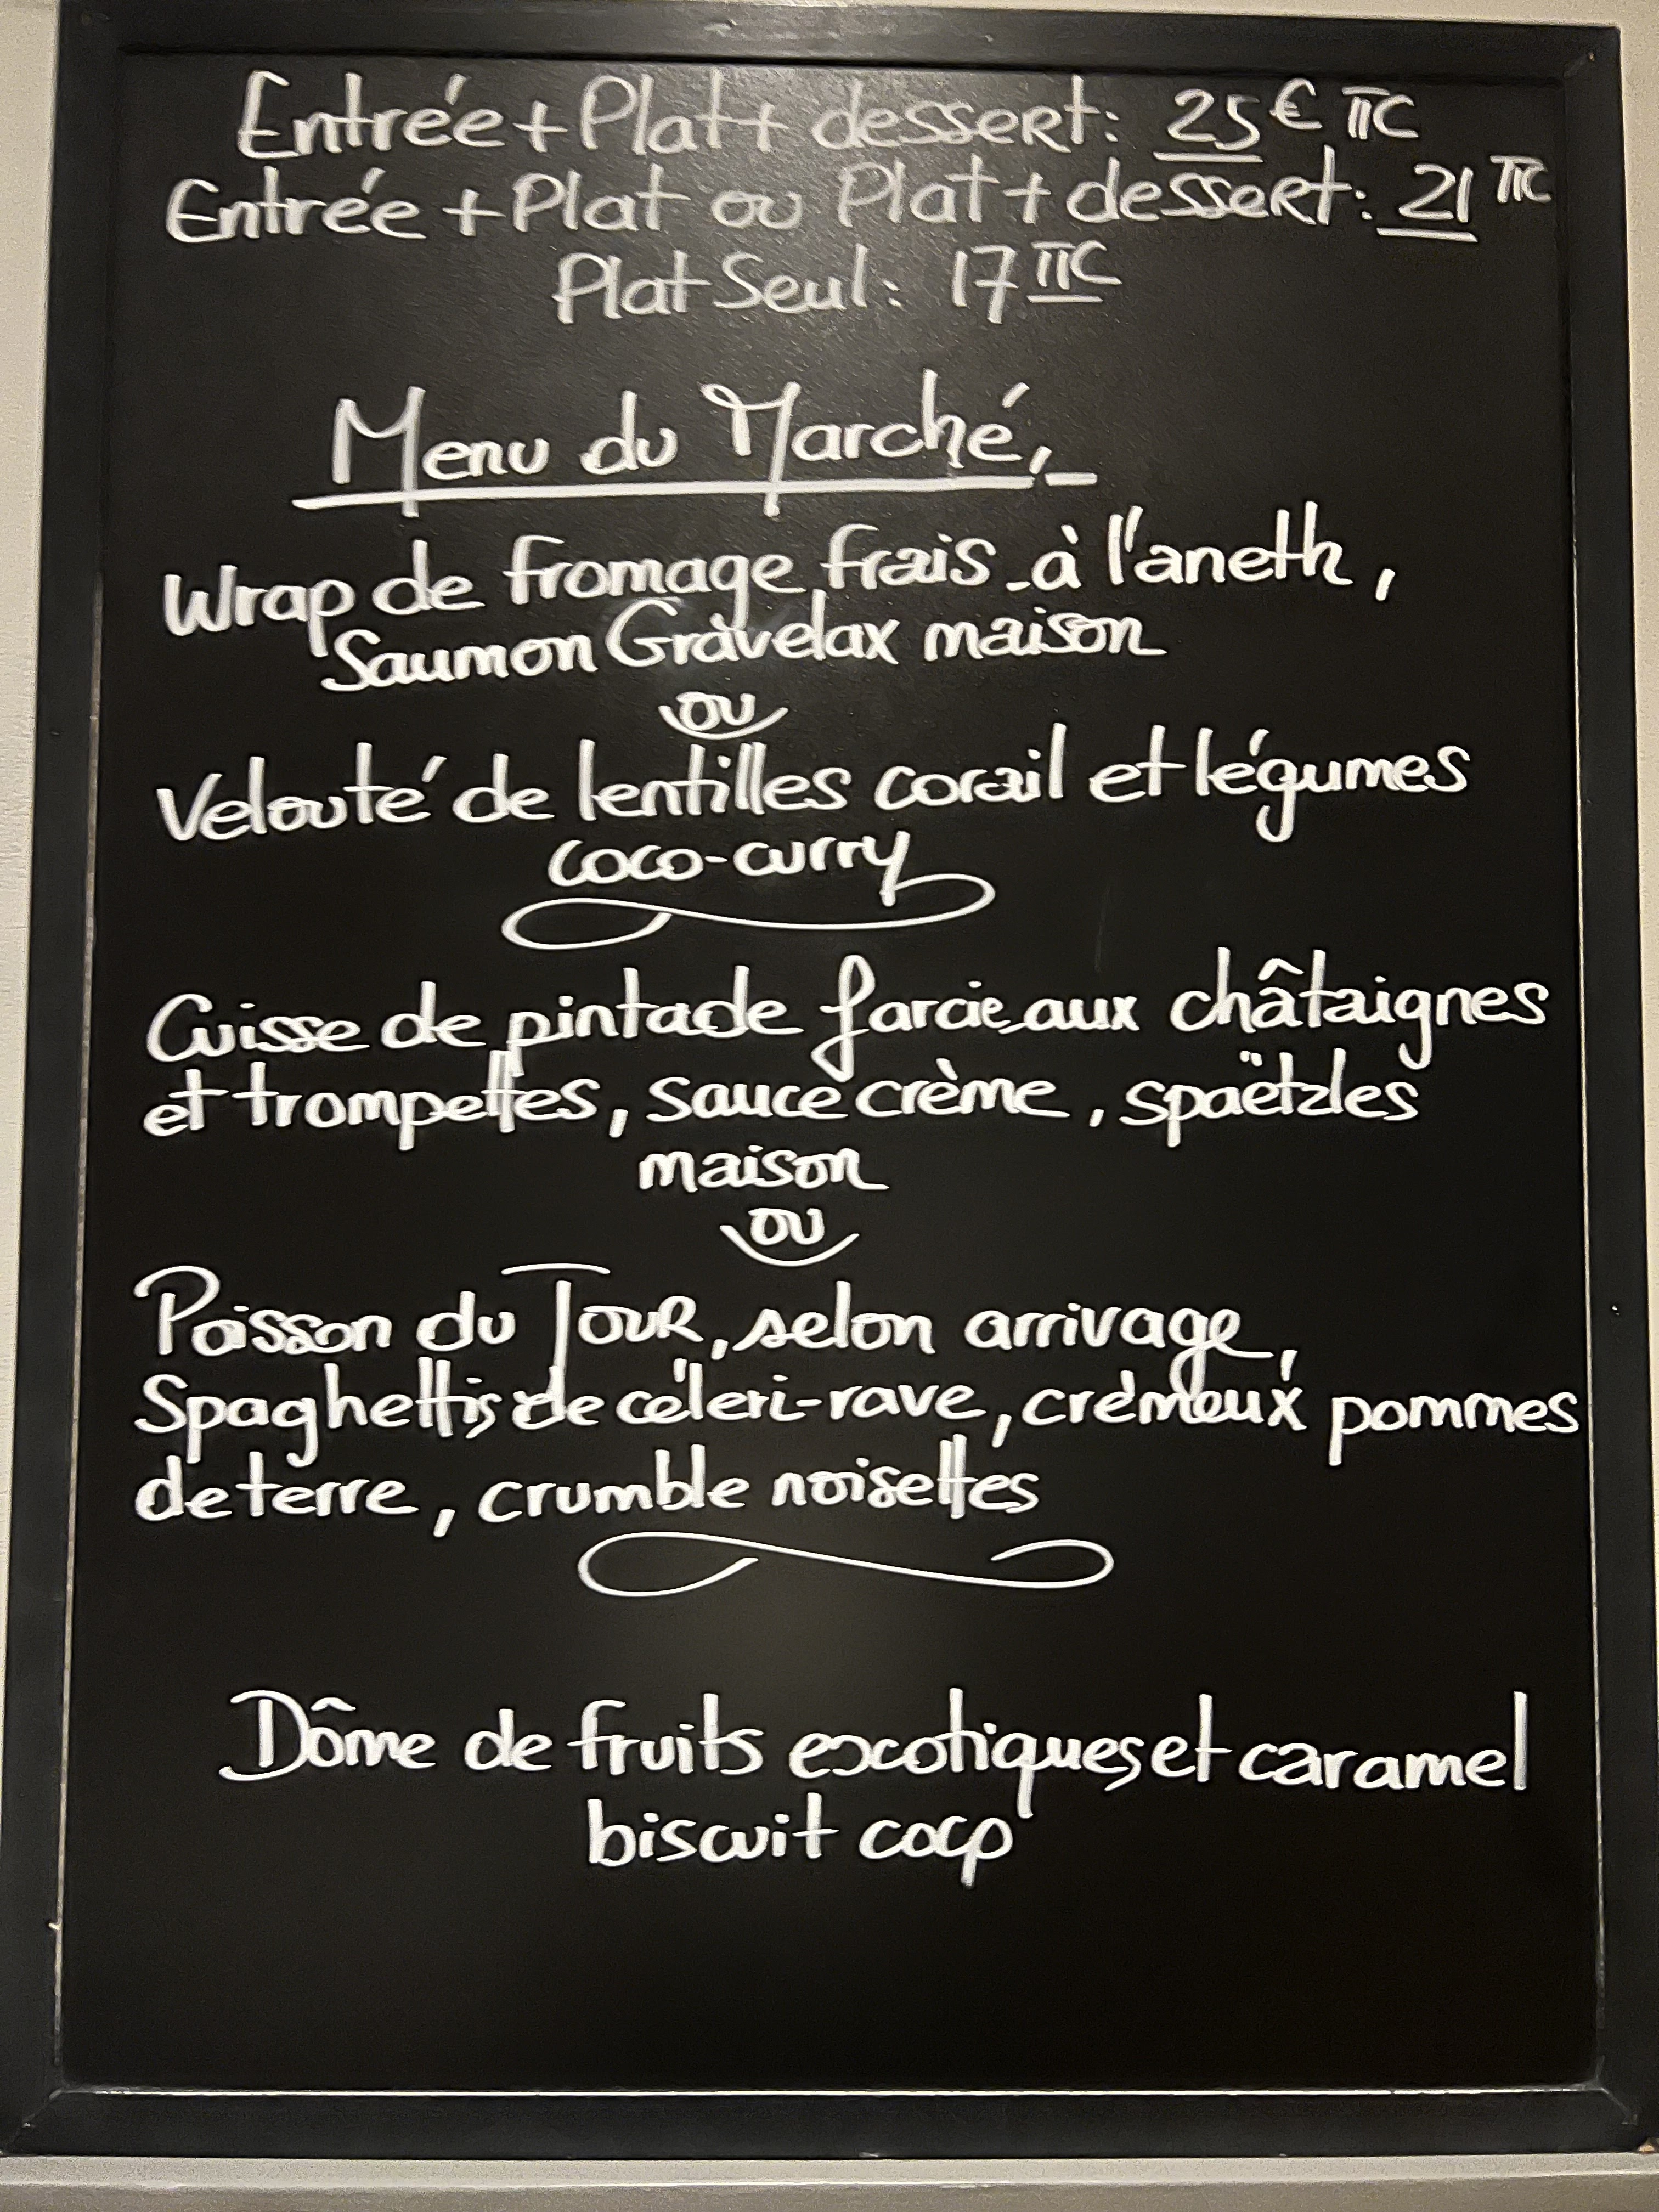 Entrée + Plat + dessert : 25€ TTC
Entrée + Plat ou Plat + dessert : 21 TTC
Plat Seul : 17 TTC
Menu du Marché,
Wrap de fromage frais à l'aneth,
Saumon Gravelax maison
ou
Velouté de lentilles corail et légumes
coco-curry
Cuisse de pintade farcie aux châtaignes
et trompettes, sauce crème, spaëtzles
maison
ou
Poisson du Jour, selon arrivage,
Spaghettis de céleri-rave, crémeux pommes
de terre, crumble noisettes
Dôme de fruits exotiques et caramel
biscuit coco